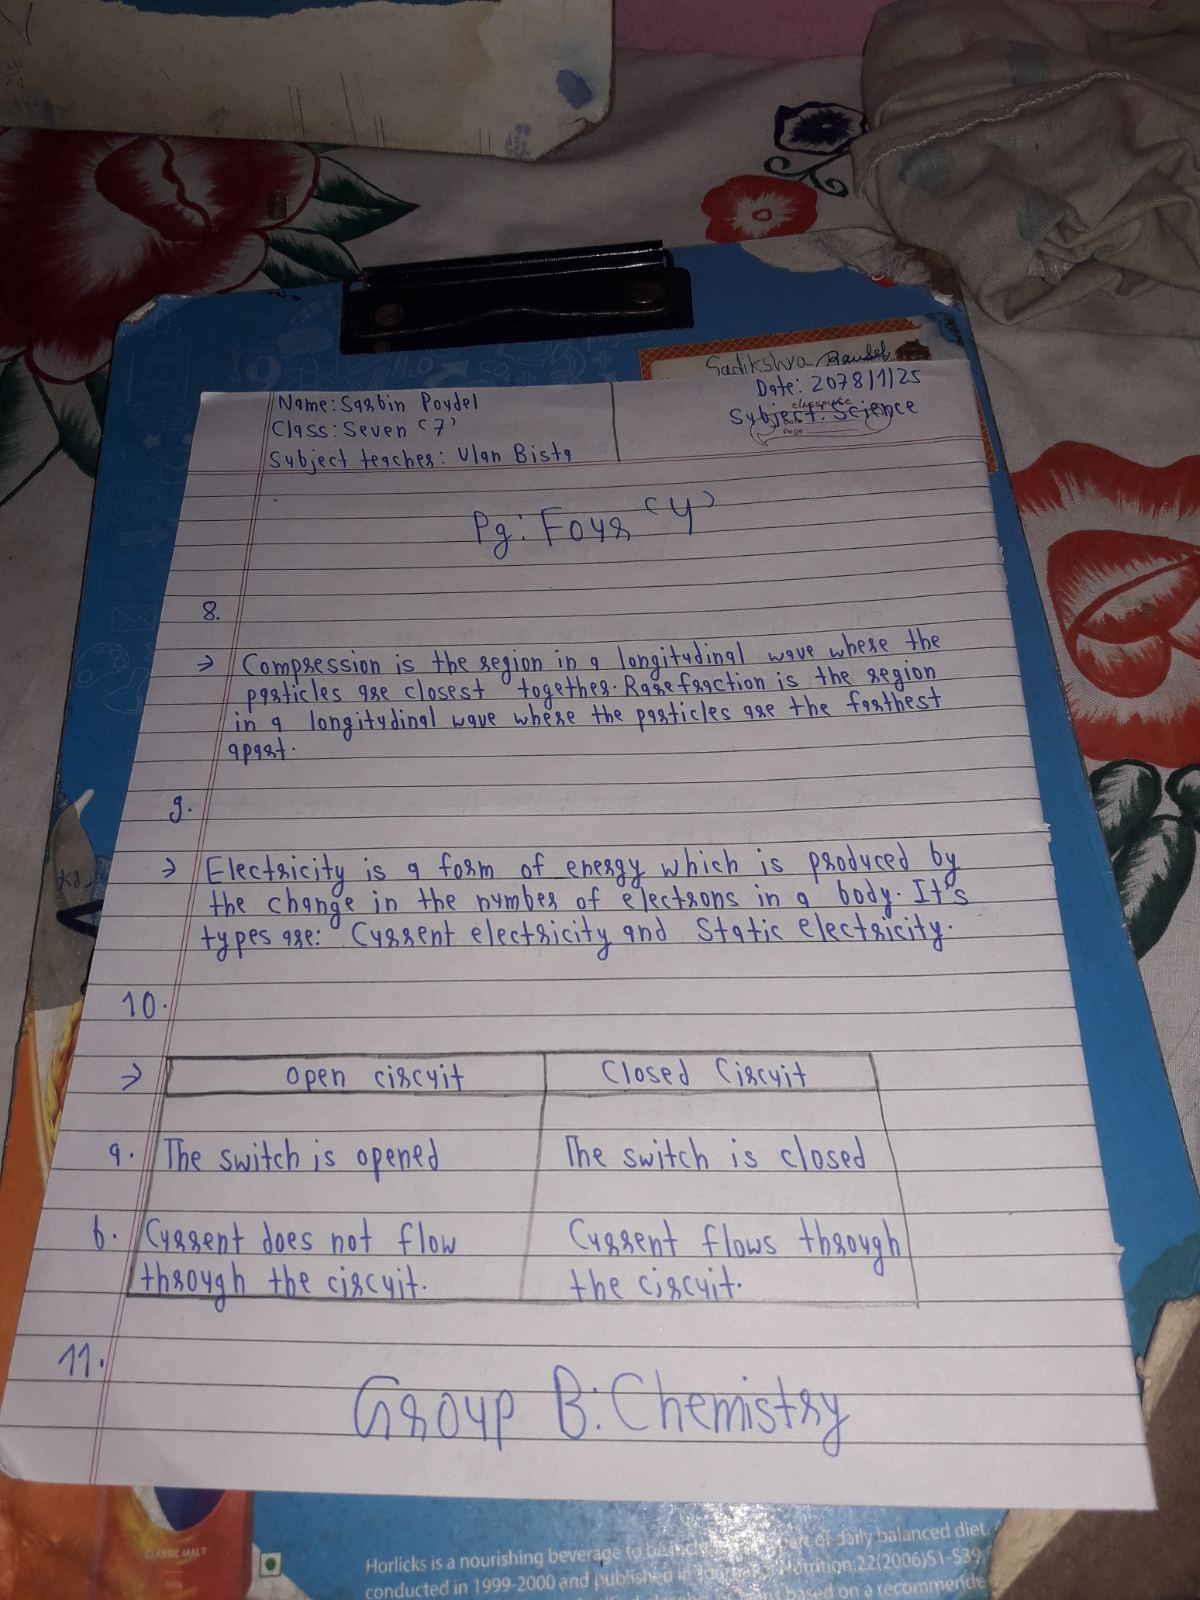 Sadikshya Paudel
Name: Sarbin Poudel
Class: Seven '7'
Subject teacher: Ulan Bista
Date: 2078/1/25
classmate
Subject: Science
Date
Page
Pg: Four '4'
8.
→ Compression is the region in a longitudinal wave where the
particles are closest together. Rarefraction is the region
in a longitudinal wave where the particles are the farthest
apart.
9.
→ Electricity is a form of energy which is produced by
the change in the number of electrons in a body. It's
types are: Current electricity and Static electricity.
10.
→ Open circuit Closed Circuit
a. The switch is opened The switch is closed
b. Current does not flow Current flows through
through the circuit. the circuit.
11.
Group B: Chemistry
CLASSIC MALT
Horlicks is a nourishing beverage to be part of daily balanced diet.
conducted in 1999-2000 and published in Nutrition.22(2006)S1-S39
based on a recommende